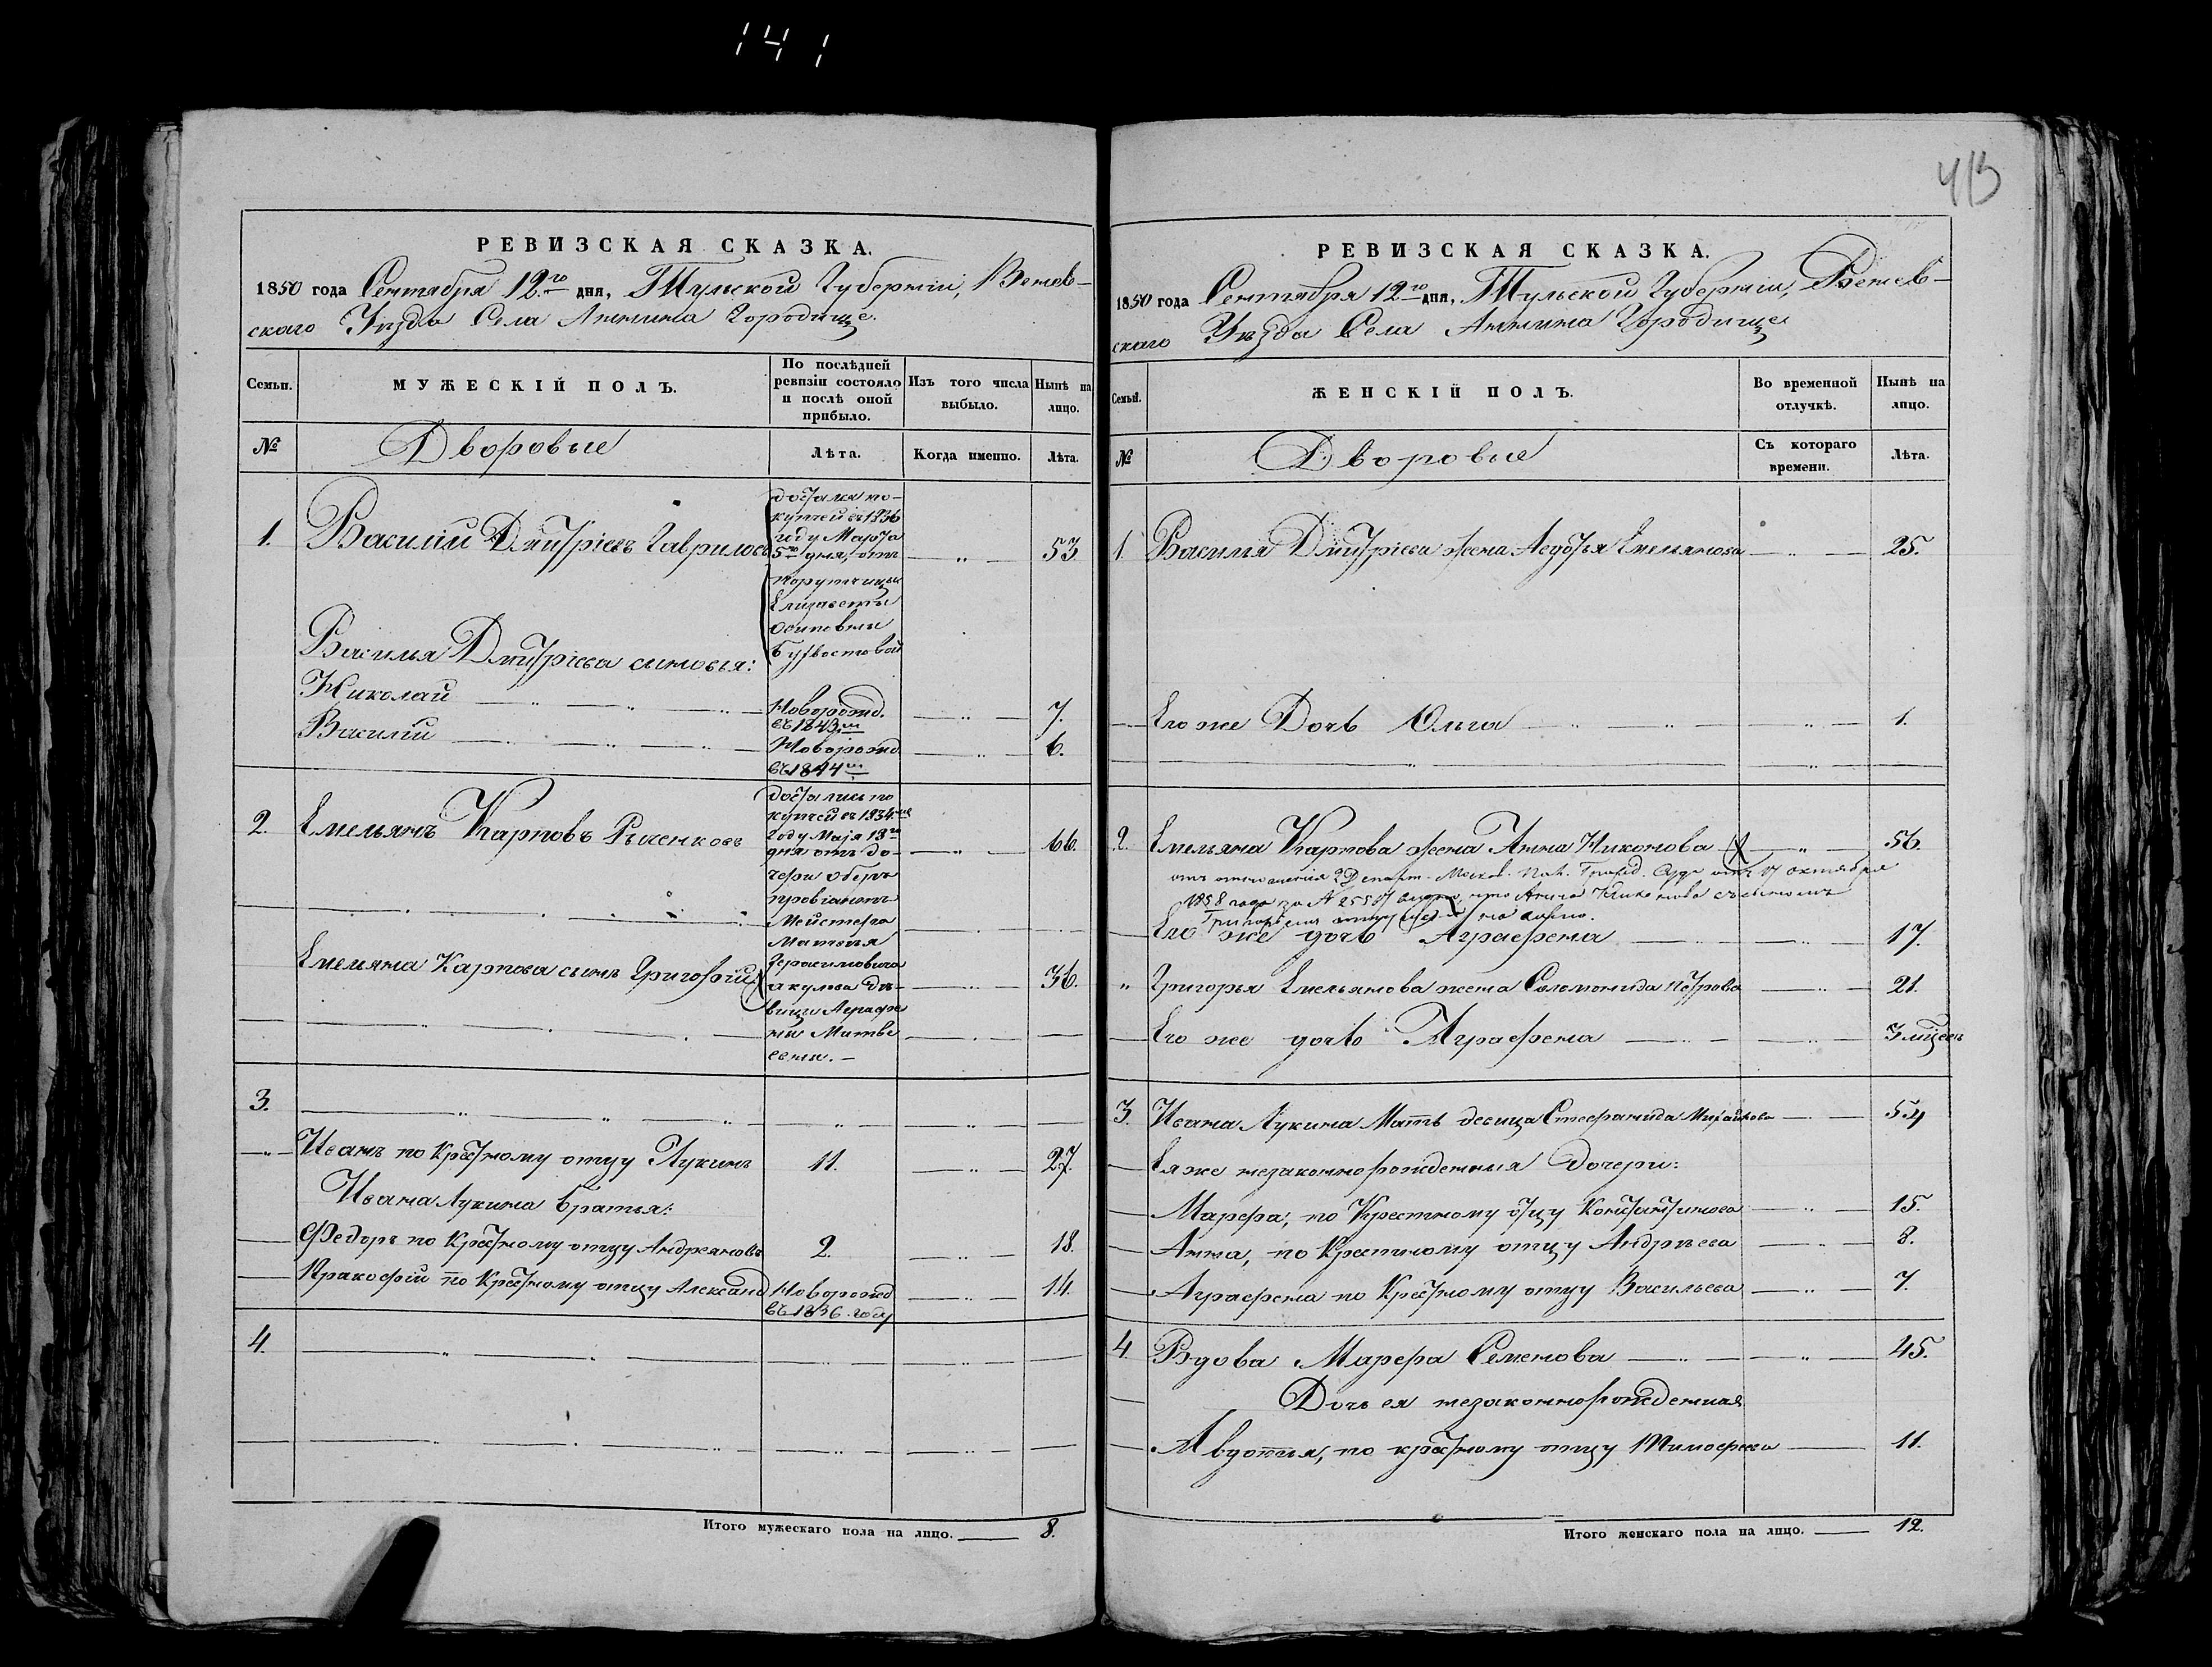 141
413
РЕВИЗСКАЯ СКАЗКА.
1850 года Сентября 12го дня, Тульской Губерніи, Венев-
скаго Уѣзда Села Аннина Городище.
Семьи.
МУЖЕСКІЙ ПОЛЪ.
По послѣдней ревизіи состояло и послѣ оной прибыло.
Изъ того числа выбыло.
Нынѣ на лицо.
№
Дворовые
Лѣта.
Когда именно.
Лѣта.
1. Василій Дмитріевъ Гавриловъ
достался по
купчей въ 1836
году Марта
5го дня, отъ
порутчицы
Елизаветы
Осиповны
Бухвостовой
53
Василья Дмитріева сыновья:
Николай
Новорожд.
въ 1843м
7.
Василій
Новорожд.
въ 1844м
6.
2. Емельянъ Карповъ
достались по
купчей въ 1834мъ
году Маія 13го
дня отъ до-
чери Оберъ
провіантъ
Мейстера
Матвѣя
Герасимовича
дѣ-
вицы Аграфе
ны Матвѣ
евны.
66.
Емельяна Карпова сынъ Григорій
36.
3.
Иванъ по Крестному отцу Лукинъ 11. 27.
Ивана Лукина братья:
Федоръ по Крестному отцу Андреяновъ 2. 18.
Пракофій по Крестному отцу Александ Новорожд 14.
въ 1836 году
4.
Итого мужескаго пола на лицо. 8.
РЕВИЗСКАЯ СКАЗКА.
1850 года Сентября 12го дня, Тульской Губерніи, Венев-
скаго Уѣзда Села Аннина Городище
Семьи.
ЖЕНСКІЙ ПОЛЪ.
Во временной отлучкѣ.
Нынѣ на лицо.
№
Дворовые
Съ котораго времени.
Лѣта.
1. Василья Дмитріева жена Авдотья Емельянова 25.
Его же Дочь Ольга 1.
2. Емельяна Карпова жена Анна Никонова 56.
отъ отношенія 2 Департ. Москов. Пал. Гражд. Суда отъ 17 октября
1858 года за № 2558 что Анна Никонова съ сыномъ
Григорьемъ отпущены на волю.
Его же дочь Аграфена 17.
Григорья Емельянова жена Соломонида Петрова 21.
Его же дочь Аграфена 3 мѣсец
3. Ивана Лукина Мать девица Стефанида Михайлова 54
Ея же незаконнорожденныя Дочери:
Марфа, по Крестному отцу Константинова 15.
Анна, по Крестному отцу Андрѣева 8.
Аграфена по Крестному отцу Васильева 7.
4 Вдова Марфа Семенова 45.
Дочь ея незаконнорожденная
Авдотья, по крестному отцу Тимофеева 11.
Итого женскаго пола на лицо. 12.